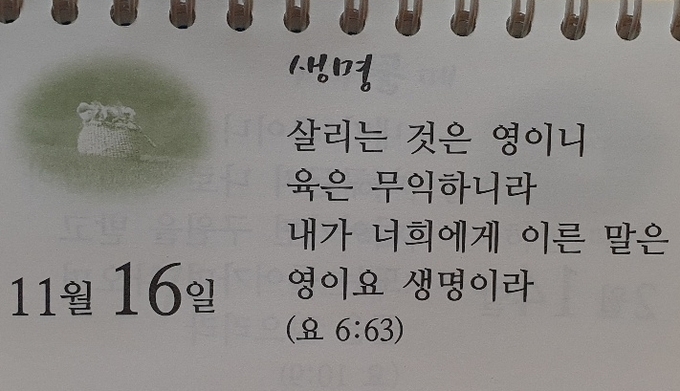 생명
살리는 것은 영이니
육은 무익하니라
내가 너희에게 이른 말은
영이요 생명이라
(요 6:63)
11월 16일